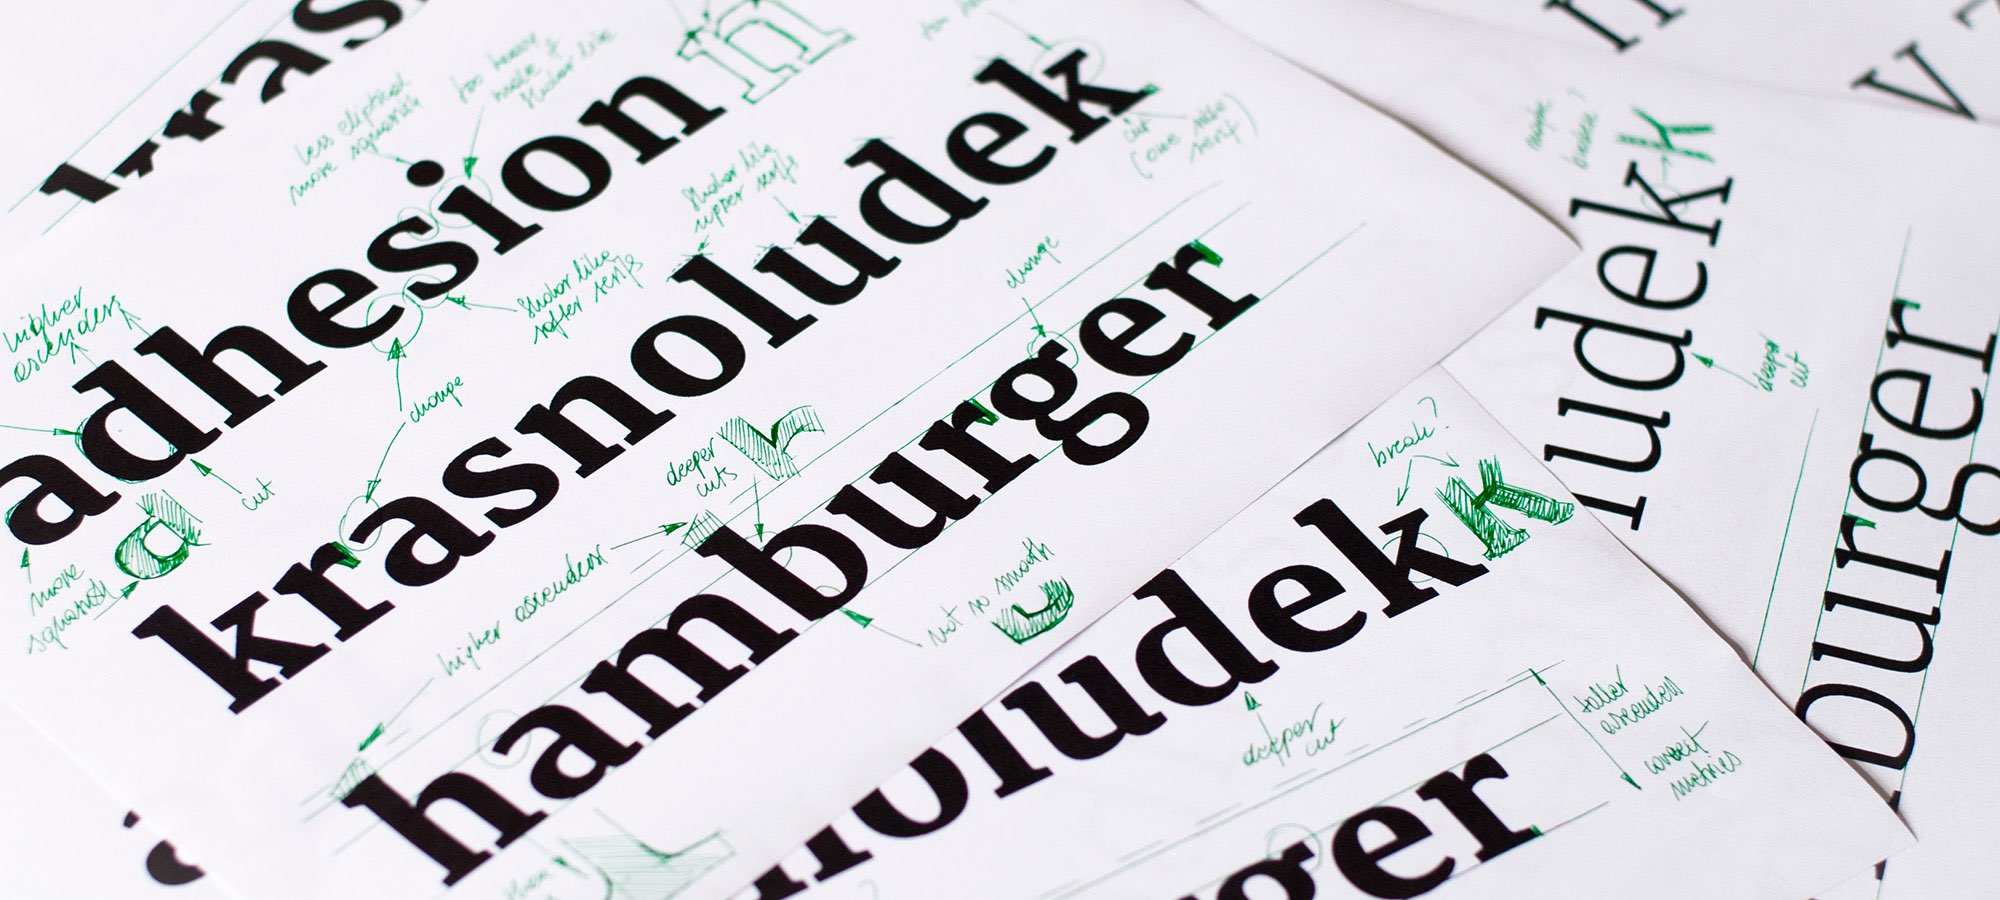 kras
adhesion
n
krasnoludek
hamburger
less eliptical
more squarish
too heavy
make
shorter like
shorter like
upper serifs
shorter like
softer serifs
change
change
higher
ascenders
cut
d
more
squarish
cut
(one side
serif)
deeper
cuts
r
higher ascenders
not so smooth
noludek
k
break?
deeper
cut
ger
taller
ascenders
correct
metrics
ludek
k
maybe
break?
deeper
cut
burger
n
v